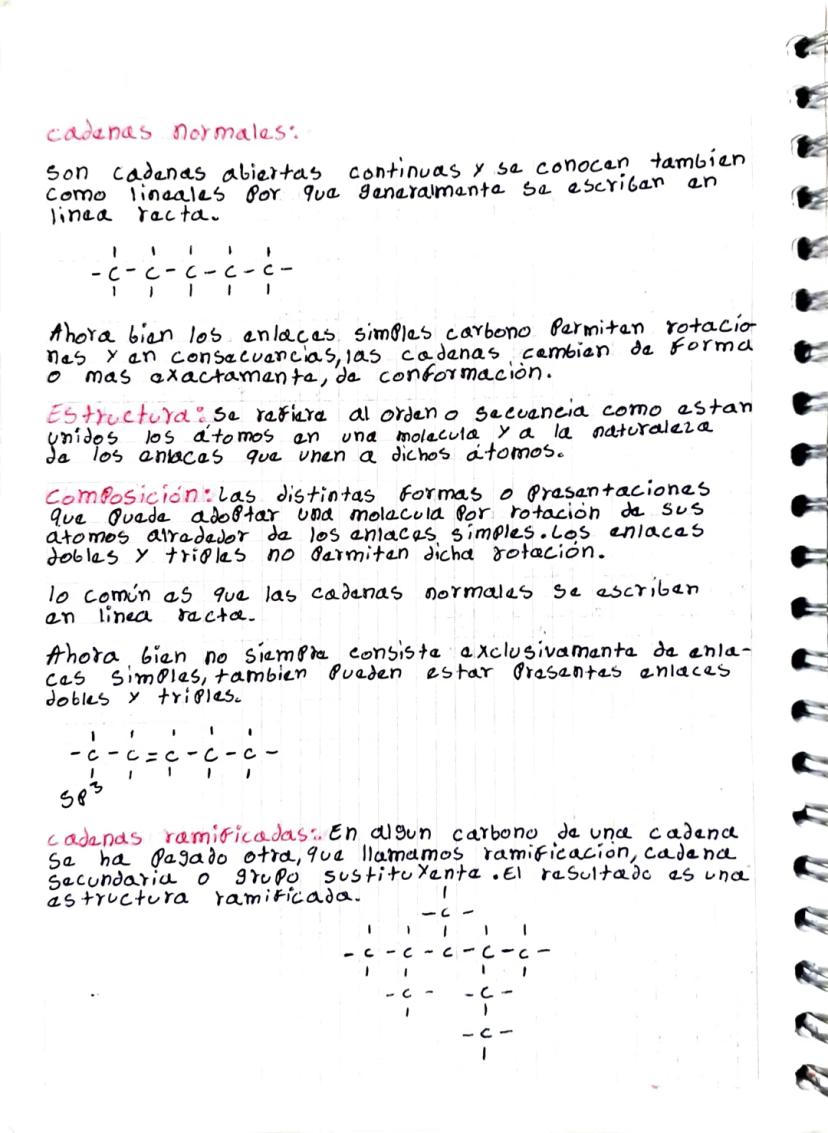 cadenas normales:
Son cadenas abiertas continuas y se conocen tambien
como lineales por que generalmente se escriben en
linea recta.
- C - C - C - C - C -
Ahora bien los enlaces simples carbono permiten rotacio
nes y en consecuencias, las cadenas cambien de forma
o mas exactamente, de conformación.
Estructura: se refiere al orden o secuencia como estan
unidos los átomos en una molecula y a la naturaleza
de los enlaces que unen a dichos átomos.
Composición: Las distintas formas o presentaciones
que puede adoptar una molecula por rotación de sus
atomos alrededor de los enlaces simples. Los enlaces
dobles y triples no permiten dicha rotación.
lo común es que las cadenas normales se escriben
en linea recta.
Ahora bien no siempre consiste exclusivamente de enla-
ces simples, tambien pueden estar presentes enlaces
dobles y triples.
- C - C = C - C - C -
SP³
cadenas ramificadas: En algun carbono de una cadena
se ha pegado otra, que llamamos ramificación, cadena
secundaria o grupo sustituyente. El resultado es una
estructura ramificada.
- C -
- C - C - C - C - C -
- C - - C -
- C -